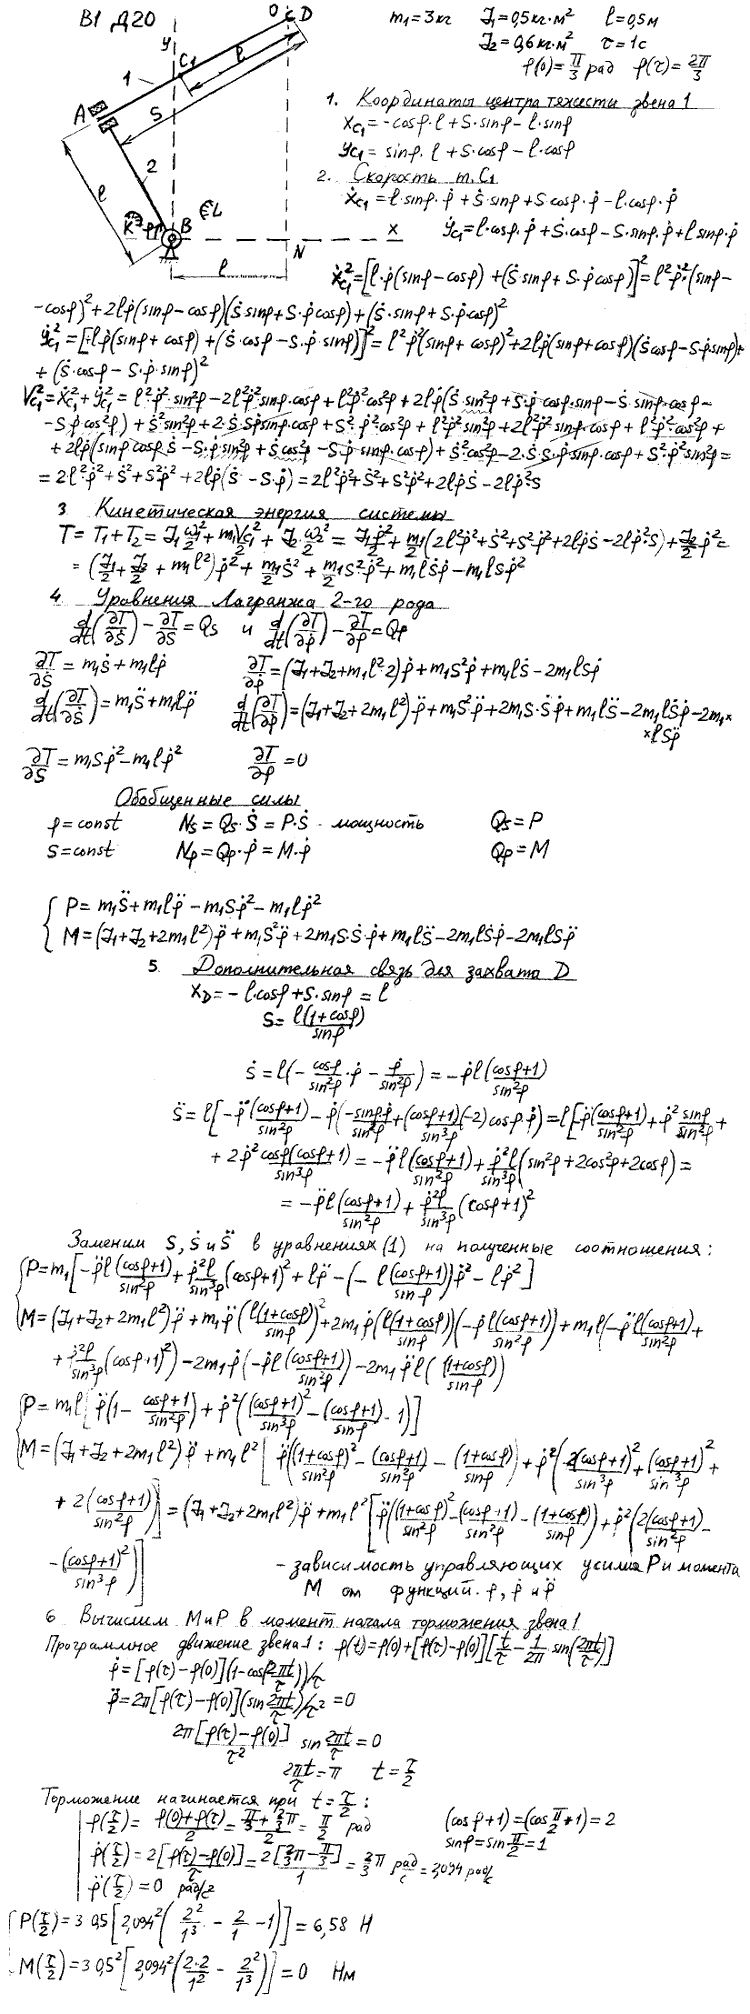 В1 Д20
m₁=3кг J₁=0,5кг·м² l=0,5м
J₂=0,6кг·м² τ=1с
φ(0)=π/3 рад φ(τ)=2π/3
y O C D
C₁ l
1 S
A
2
l
B x
N
l
1. Координаты центра тяжести звена 1
x_C₁=-cosφ·l+S·sinφ-l·sinφ
y_C₁=sinφ·l+S·cosφ-l·cosφ
2. Скорость т.C₁
ẋ_C₁=l·sinφ·φ̇+Ṡ·sinφ+S·cosφ·φ̇-l·cosφ·φ̇
ẏ_C₁=l·cosφ·φ̇+Ṡ·cosφ-S·sinφ·φ̇+l sinφ·φ̇
ẋ²_C₁=[l·φ̇(sinφ-cosφ)+(Ṡ sinφ+S·φ̇ cosφ)]²=l²φ̇²·(sinφ-
-cosφ)²+2lφ̇(sinφ-cosφ)(Ṡ sinφ+S·φ̇ cosφ)+(Ṡ·sinφ+S·φ̇ cosφ)²
ẏ²_C₁=[l·φ̇(sinφ+cosφ)+(Ṡ·cosφ-S·φ̇·sinφ)]²=l²φ̇²(sinφ+cosφ)²+2lφ̇(sinφ+cosφ)(Ṡcosφ-Sφ̇sinφ)+
+(Ṡ·cosφ-S·φ̇·sinφ)²
V²_C₁=ẋ²_C₁+ẏ²_C₁=l²·φ̇²·sin²φ-2l²·φ̇²·sinφ·cosφ+l²φ̇²cos²φ+2lφ̇(Ṡ sin²φ+S·φ̇ cosφ·sinφ-Ṡ·sinφ·cosφ-
-S·φ̇ cos²φ)+Ṡ²sin²φ+2·Ṡ·Sφ̇sinφ·cosφ+S²·φ̇²cos²φ+l²φ̇²sin²φ+2l²φ̇²sinφ·cosφ+l²φ̇²cos²φ+
+2lφ̇(sinφ cosφ·Ṡ-S·φ̇ sin²φ+Ṡcos²φ-S·φ̇ sinφ·cosφ)+Ṡ²cos²φ-2·Ṡ·S·φ̇·sinφ·cosφ+S²·φ̇²sin²φ=
=2·l²·φ̇²+Ṡ²+S²φ̇²+2lφ̇(Ṡ-S·φ̇)=2l²φ̇²+Ṡ²+S²φ̇²+2lφ̇Ṡ-2lφ̇²S
3 Кинетическая энергия системы
T=T₁+T₂=J₁ω₁²/2+m₁V²_C₁/2+J₂·ω₂²/2=J₁φ̇²/2+m₁/2(2l²φ̇²+Ṡ²+S²φ̇²+2lφ̇Ṡ-2lφ̇²S)+J₂/2φ̇²=
=(J₁/2+J₂/2+m₁l²)φ̇²+m₁/2Ṡ²+m₁/2S²φ̇²+m₁lṠφ̇-m₁lSφ̇²
4 Уравнения Лагранжа 2-го рода
d/dt(∂T/∂Ṡ)-∂T/∂S=Qs и d/dt(∂T/∂φ̇)-∂T/∂φ=Qφ
∂T/∂Ṡ=m₁Ṡ+m₁lφ̇ ∂T/∂φ̇=(J₁+J₂+m₁l²·2)φ̇+m₁S²φ̇+m₁lṠ-2m₁lSφ̇
d/dt(∂T/∂Ṡ)=m₁S̈+m₁lφ̈ d/dt(∂T/∂φ̇)=(J₁+J₂+2m₁l²)φ̈+m₁S²φ̈+2m₁S·Ṡφ̇+m₁lS̈-2m₁lṠφ̇-2m₁×
×lSφ̈
∂T/∂S=m₁Sφ̇²-m₁lφ̇² ∂T/∂φ=0
Обобщенные силы
φ=const Ns=Qs·Ṡ=P·Ṡ - мощность Qs=P
S=const Nφ=Qφ·φ̇=M·φ̇ Qφ=M
P=m₁S̈+m₁lφ̈-m₁Sφ̇²-m₁lφ̇²
M=(J₁+J₂+2m₁l²)φ̈+m₁S²φ̈+2m₁S·Ṡ·φ̇+m₁lS̈-2m₁lṠφ̇-2m₁lSφ̈
5. Дополнительная связь для захвата D
x_D=-l·cosφ+S·sinφ=l
S=l(1+cosφ)/sinφ
Ṡ=l(-cosφ/sin²φ·φ̇-φ̇/sin²φ)=-φ̇l(cosφ+1)/sin²φ
S̈=l[-φ̈(cosφ+1)/sin²φ-φ̇(-sinφ·φ̇/sin²φ+(cosφ+1)(-2)cosφ·φ̇/sin³φ)=l[-φ̈(cosφ+1)/sin²φ+φ̇²sinφ/sin²φ+
+2φ̇²cosφ(cosφ+1)/sin³φ=-φ̈l(cosφ+1)/sin²φ+φ̇²l/sin³φ(sin²φ+2cos²φ+2cosφ)=
=-φ̈l(cosφ+1)/sin²φ+φ̇²l/sin³φ(cosφ+1)²
Заменим S, Ṡ и S̈ в уравнениях (1) на полученные соотношения:
P=m₁[-φ̈l(cosφ+1)/sin²φ+φ̇²l/sin³φ(cosφ+1)²+lφ̈-(-l(cosφ+1)/sinφ)φ̇²-lφ̇²]
M=(J₁+J₂+2m₁l²)φ̈+m₁φ̈(l(1+cosφ)/sinφ)²+2m₁φ̇(l(1+cosφ)/sinφ)(-φ̇l(cosφ+1)/sin²φ)+m₁l(-φ̈l(cosφ+1)/sin²φ+
+φ̇²l/sin³φ(cosφ+1)²)-2m₁φ̇(-φ̇l(cosφ+1)/sin²φ)-2m₁φ̈l((1+cosφ)/sinφ)
P=m₁l[φ̈(1-(cosφ+1)/sin²φ)+φ̇²((cosφ+1)²/sin³φ-(cosφ+1)/sinφ-1)]
M=(J₁+J₂+2m₁l²)φ̈+m₁l²[φ̈((1+cosφ)²/sin²φ-(cosφ+1)/sin²φ-(1+cosφ)/sinφ)+φ̇²(-2(cosφ+1)²/sin³φ+(cosφ+1)²/sin³φ+
+2(cosφ+1)/sin²φ)]=(J₁+J₂+2m₁l²)φ̈+m₁l²[φ̈((1+cosφ)²/sin²φ-(cosφ+1)/sin²φ-(1+cosφ)/sinφ)+φ̇²(2(cosφ+1)/sin²φ-
-(cosφ+1)²/sin³φ)] - зависимость управляющих усилия P и момента
M от функций φ, φ̇ и φ̈
6 Вычислим M и P в момент начала торможения звена 1
Программное движение звена 1: φ(t)=φ(0)+[φ(τ)-φ(0)][t/τ-1/2π sin(2πt/τ)]
φ̇=[φ(τ)-φ(0)](1-cos(2πt/τ))/τ
φ̈=2π[φ(τ)-φ(0)](sin2πt/τ)/τ²=0
2π[φ(τ)-φ(0)]/τ² sin2πt/τ=0
2πt/τ=π t=τ/2
Торможение начинается при t=τ/2:
φ(τ/2)=(φ(0)+φ(τ))/2=(π/3+2/3π)/2=π/2 рад (cosφ+1)=(cosπ/2+1)=2
sinφ=sinπ/2=1
φ̇(τ/2)=2[φ(τ)-φ(0)]/τ=2[2/3π-π/3]/1=2/3π рад/с=2,094 рад/с
φ̈(τ/2)=0 рад/с²
P(τ/2)=3 0,5[2,094²(2²/1³-2/1-1)]=6,58 Н
M(τ/2)=3 0,5²[2,094²(2·2/1²-2²/1³)]=0 Нм